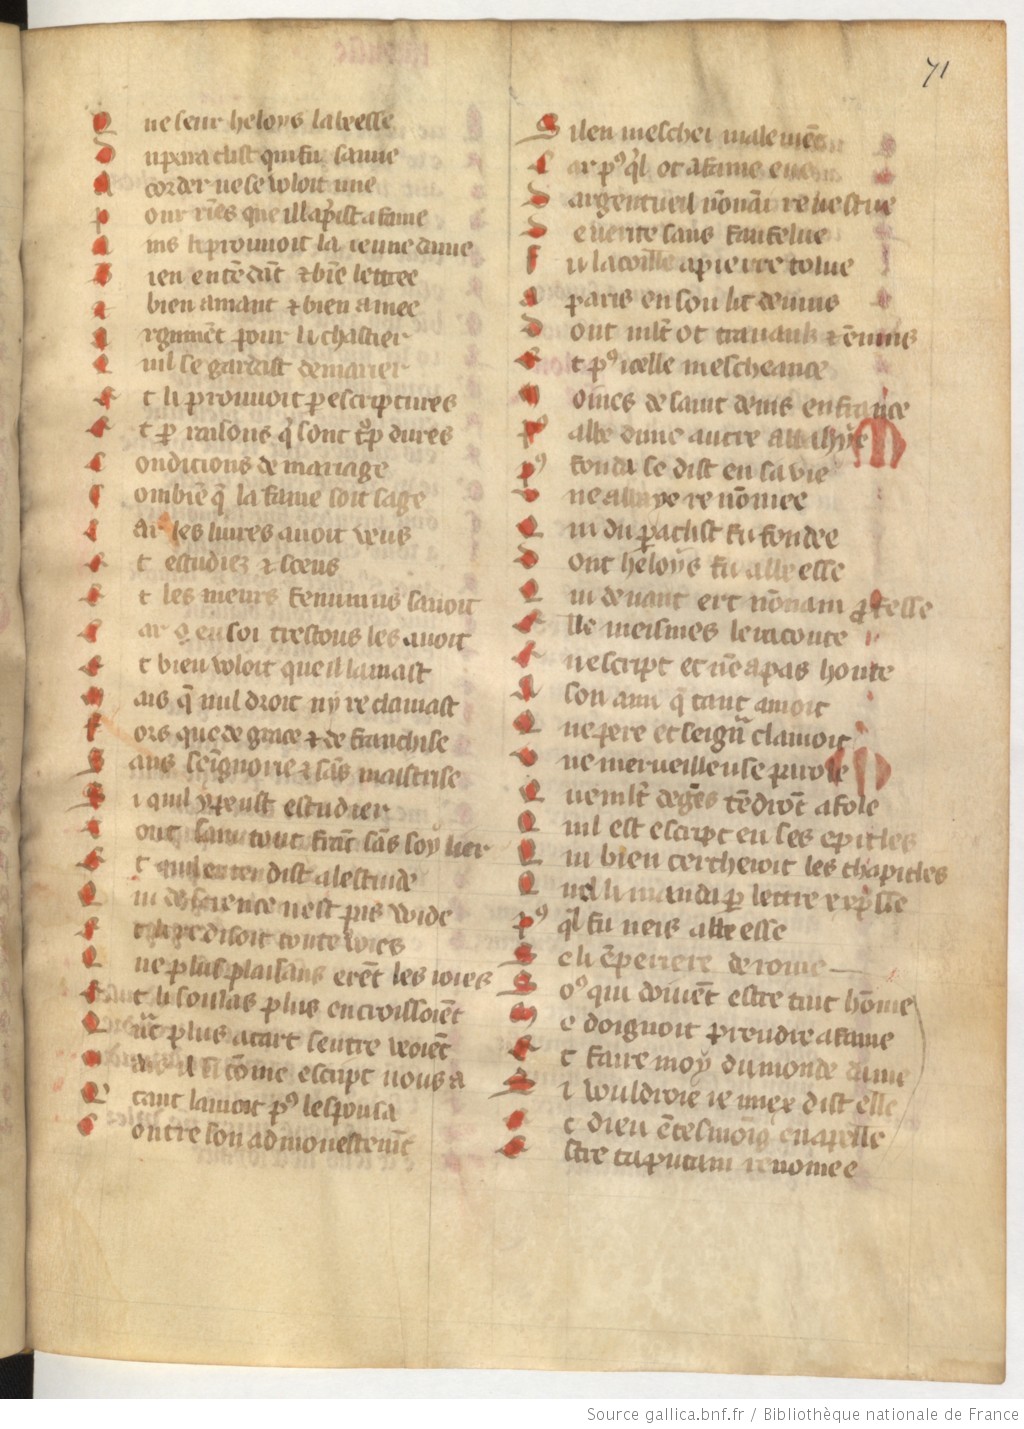 71
Que seur heloys labeesse
Du paraclist qui fu samie
acorder ne se voloit mie
pour riẽs que il la p̃ist a fame
ains li prouvoit la ieune dame
Bien entẽdãt ⁊ biẽ lettree
⁊ bien amant ⁊ bien amee
argumẽt pour li chastier
Quil se gardast de marier
Et li prouvoit p escriptures
Et p raisons q̃ sont t͛p dures
Condicions de mariage
Combiẽ q̃ la fame soit sage
Car les livres avoit veus
Et estudiez ⁊ sceus
Et les meurs femenins savoit
Car en soi trestous les avoit
Et bien voloit que il lamast
Mais q̃ nul droit ny reclamast
Fors que de grace ⁊ de franchise
Sans seignorie ⁊ sãs maistrise
Si quil y peust estudier
Tout sans tout frãc sãs soy lier
Et quil entendist a lestude
Qui de science nest pas vuide
Et li redisoit toute voies
Que plus plaisans erẽt les ioies
Et li soulas plus en croissoiẽt
Quãt plus a tart sentre veoiẽt
Mais il si cõme escript nous a
Qui tant lamoit pꝰ lespousa
Contre son admonestemẽt
Si len meschei malemẽt
Car pꝰ ql ot a fame
Dargenteuil nõnaĩ revestue
De verite sans fanfelue
Fu la coille a pierre tolue
a paris en son lit de nuis
Dont mlt ot travaux ⁊ ẽnuis
Et pꝰ icelle mescheance
Moines de saint denis en france
Pꝰ abbe dune autre abbahye
pꝰ fonda se dist en sa vie
Une abbaye renõmee
Qui du paclist fu fondee
Dont heloys fu abbeesse
Qui devant ert nõnain pfesse
Elle meismes le raconte
Et escript et nẽ a pas honte
A son ami q̃ tant amoit
Que pere et seign̄ clamoit
Une merveilleuse parole
Que mlt de gẽs tẽdrõt a fole
Quil est escript en ses epitles
Qui bien cercheroit les chapitles
Quel li manda p lettre expsse
pꝰ ql fu neis abbeesse
Se li ẽperiere de rome
Soꝰ qui doivẽt estre tuit hõme
Me doignoit prendre a fame
Et faire moy du monde dame
Si vouldroie ie miex dist elle
Et dieu ẽ tesmoig en apelle
Estre ta putain renomee
Source gallica.bnf.fr / Bibliothèque nationale de France